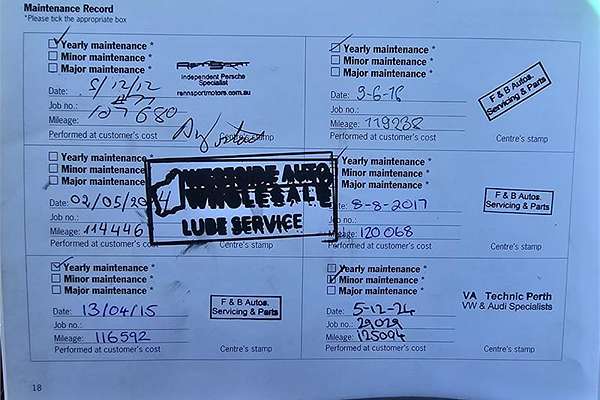 Maintenance Record
*Please tick the appropriate box
Yearly maintenance *
Minor maintenance *
Major maintenance *
Date: 5/12/12
Job no.:
Mileage: 107680
Performed at customer's cost
RennSport
Independent Porsche
Specialist
rennsportmotors.com.au
Centre's stamp
Yearly maintenance *
Minor maintenance *
Major maintenance *
Date: 9-6-16
Job no.:
Mileage: 119238
Performed at customer's cost
F & B Autos.
Servicing & Parts
Centre's stamp
Yearly maintenance *
Minor maintenance *
Major maintenance *
Date: 02/05/2014
Job no.:
Mileage: 114446
Performed at customer's cost
WESTSIDE AUTO
WHOLESALE
LUBE SERVICE
Centre's stamp
Yearly maintenance *
Minor maintenance *
Major maintenance *
Date: 8-8-2017
Job no.:
Mileage: 120068
Performed at customer's cost
F & B Autos.
Servicing & Parts
Centre's stamp
Yearly maintenance *
Minor maintenance *
Major maintenance *
Date: 13/04/15
Job no.:
Mileage: 116592
Performed at customer's cost
F & B Autos.
Servicing & Parts
Centre's stamp
Yearly maintenance *
Minor maintenance *
Major maintenance *
Date: 5-12-24
Job no.: 29029
Mileage: 125094
Performed at customer's cost
VA Technic Perth
VW & Audi Specialists
Centre's stamp
18